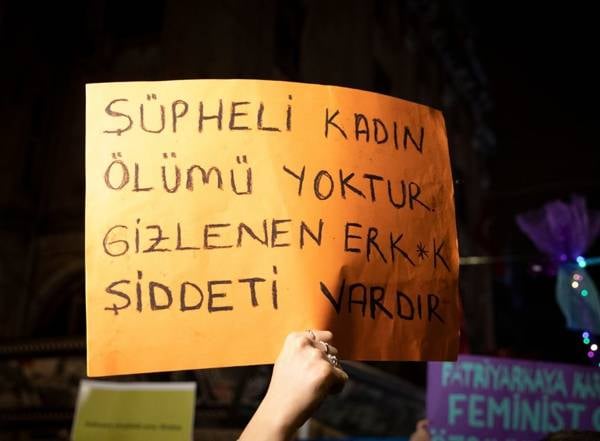 ŞÜPHELİ KADIN
ÖLÜMÜ YOKTUR.
GİZLENEN ERK*K
ŞİDDETİ VARDIR
FEMİNİST